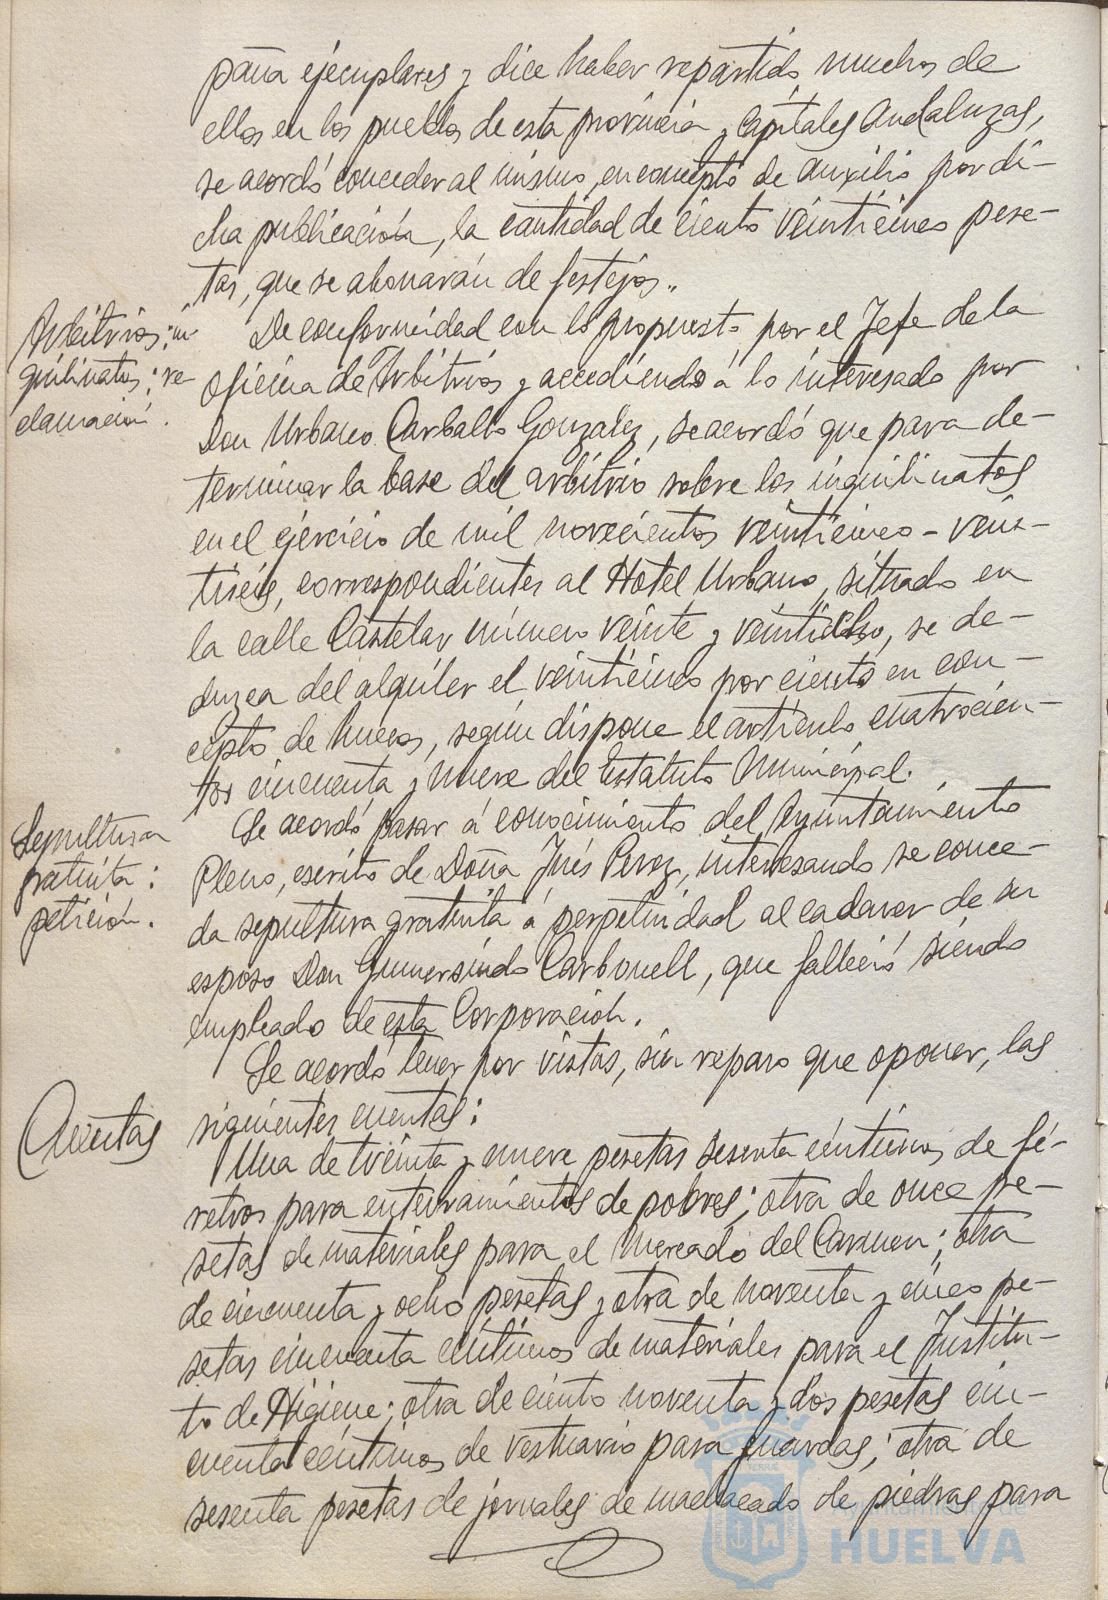 paña ejemplares y dice haber repartido muchos de
ellos en los pueblos de esta provincia y Capitales Andaluzas,
se acordó conceder al mismo, en concepto de auxilio por di-
cha publicación, la cantidad de ciento veinticinco pese-
tas, que se abonarán de festejos.
Arbitrios: in-
quilinatos: re
clamación.
De conformidad con lo propuesto por el Jefe de la
Oficina de Arbitrios y accediendo á lo interesado por
Don Urbano Carballo Gonzalez, se acordó que para de-
terminar la base del arbitrio sobre los inquilinatos
en el ejercicio de mil novecientos veinticinco - vein-
tiseis, correspondientes al Hotel Urbano, situado en
la calle Castelar número veinte y veintidos, se de-
duzca del alquiler el veinticinco por ciento en con-
cepto de huecos, según dispone el artículo cuatrocien-
tos cincuenta y nueve del Estatuto Municipal.
Sepultura
gratuita:
petición.
Se acordó pasar á conocimiento del Ayuntamiento
Pleno, escrito de Doña Inés Perez, interesando se conce-
da sepultura gratuita á perpetuidad al cadaver de su
esposo Don Gumersindo Carbonell, que falleció siendo
empleado de esta Corporación.
Cuentas
Se acordó tener por vistas, sin reparo que oponer, las
siguientes cuentas:
Una de treinta y nueve pesetas sesenta céntimos de fé-
retros para enterramientos de pobres; otra de once pe-
setas de materiales para el Mercado del Carmen; otra
de cincuenta y ocho pesetas y otra de noventa y cinco pe-
setas cincuenta céntimos de materiales para el Institu-
to de Higiene; otra de ciento noventa y dos pesetas cin-
cuenta céntimos de vestuario para guardas; otra de
sesenta pesetas de jornales de machacado de piedras para
Ayuntamiento de
HUELVA